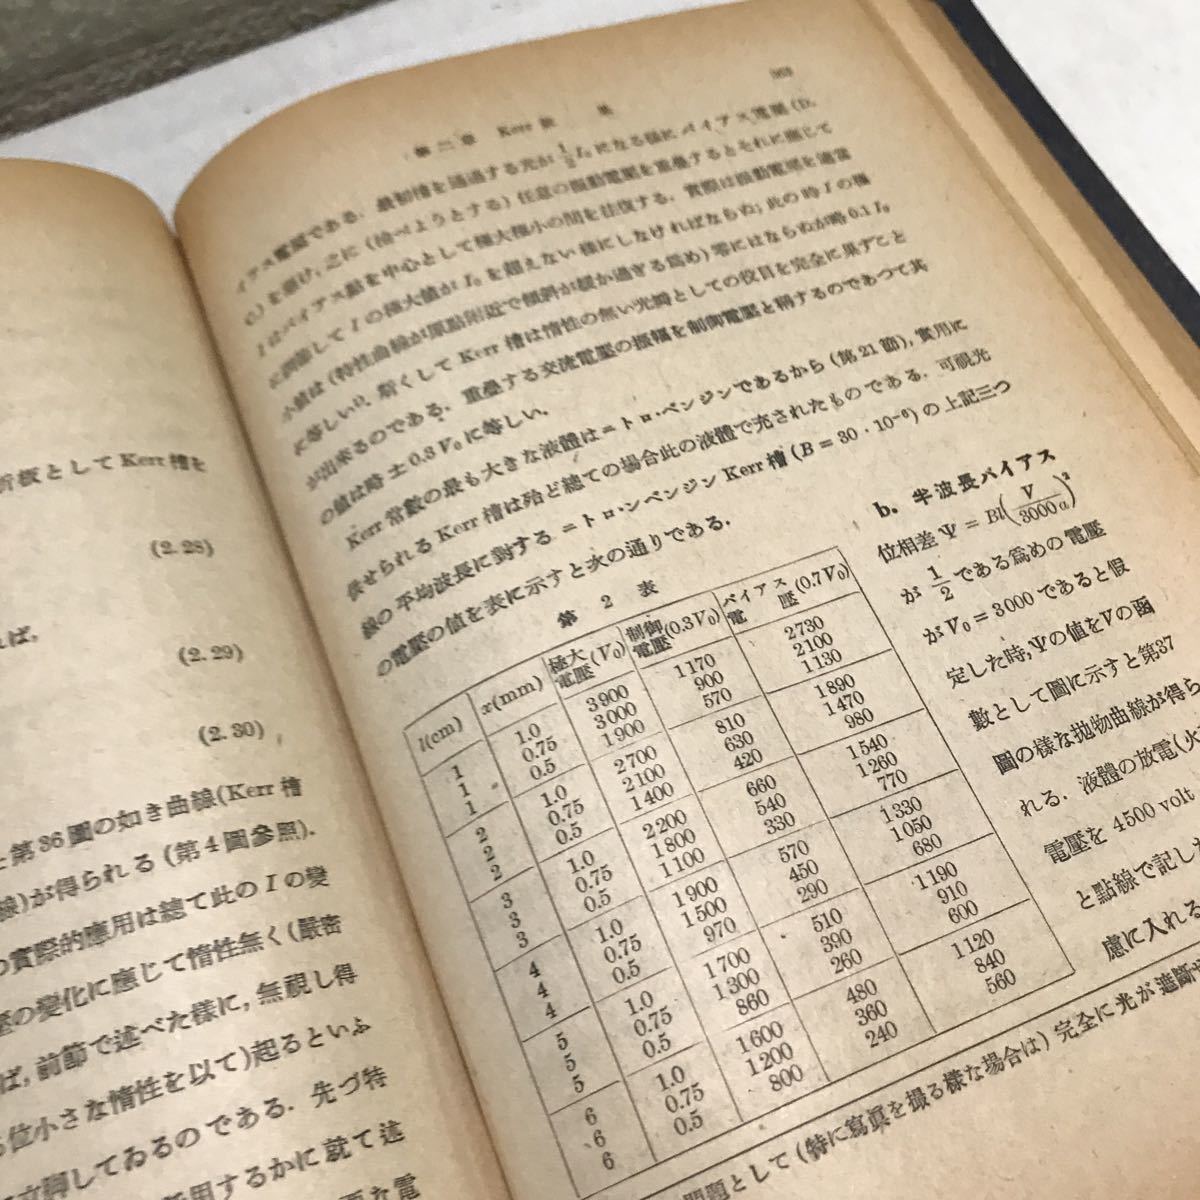 折板として Kerr 槽を
(2.28)
れば，
(2.29)
(2.30)
第36圖の如き曲線(Kerr 槽
線)が得られる (第4圖參照).
實際的應用は總て此の I の變
壓の變化に應じて惰性無く(嚴密
ば，前節で述べた様に，無視し得
位小さな惰性を以て)起るといふ
立脚してゐるのである．先づ特
用するかに就て述
第二章 Kerr 效果
イアス電壓である．最初槽を通過する光が 1/2 I₀ になる様にバイアス電壓 (D.
C.) を掛け，之に (檢べようとする) 任意の振動電壓を重疊するとそれに應じて
I はバイアス點を中心として極大極小の間を往復する．實際は振動電壓を適當
に調節して I の極大値が I₀ を超えない様にしなければならぬ; 此の時 I の極
小値は (特性曲線が原點附近で傾斜が緩か過ぎる爲め) 零にはならぬが略 0.1 I₀
に等しい¹⁾. 斯くして Kerr 槽は惰性の無い光瓣としての役目を完全に果すこと
が出來るのである．重疊する交流電壓の振幅を制御電壓と稱するのであつて其
の値は略 ±0.3 V₀ に等しい．
Kerr 常數の最も大きな液體はニトロ・ベンジンであるから (第21節)，實用に
供せられる Kerr 槽は殆ど總ての場合此の液體で充されたものである．可視光
線の平均波長に對するニトロ・ンベンジン Kerr 槽 (B = 30・10⁻⁶) の上記三つ
の電壓の値を表に示すと次の通りである．
第 2 表
l(cm) x(mm) 極大電壓(V₀) 制御電壓(0.3V₀) バイアス電壓(0.7V₀)
1 1.0 3900 1170 2730
1 0.75 3000 900 2100
1 0.5 1900 570 1130
2 1.0 2700 810 1890
2 0.75 2100 630 1470
2 0.5 1400 420 980
3 1.0 2200 660 1540
3 0.75 1800 540 1260
3 0.5 1100 330 770
4 1.0 1900 570 1330
4 0.75 1500 450 1050
4 0.5 970 290 680
5 1.0 1700 510 1190
5 0.75 1300 390 910
5 0.5 860 260 600
6 1.0 1600 480 1120
6 0.75 1200 360 840
6 0.5 800 240 560
b. 半波長バイアス
位相差 Ψ = Bl(V/3000a)²
が 1/2 である爲めの電壓
が V₀ = 3000 であると假
定した時，Ψの値をVの函
數として圖に示すと第37
圖の様な拋物曲線が得ら
れる．液體の放電(火
電壓を 4500 volt
と點線で記し
慮に入れる
問題として (特に寫眞を撮る様な場合は) 完全に光が遮斷